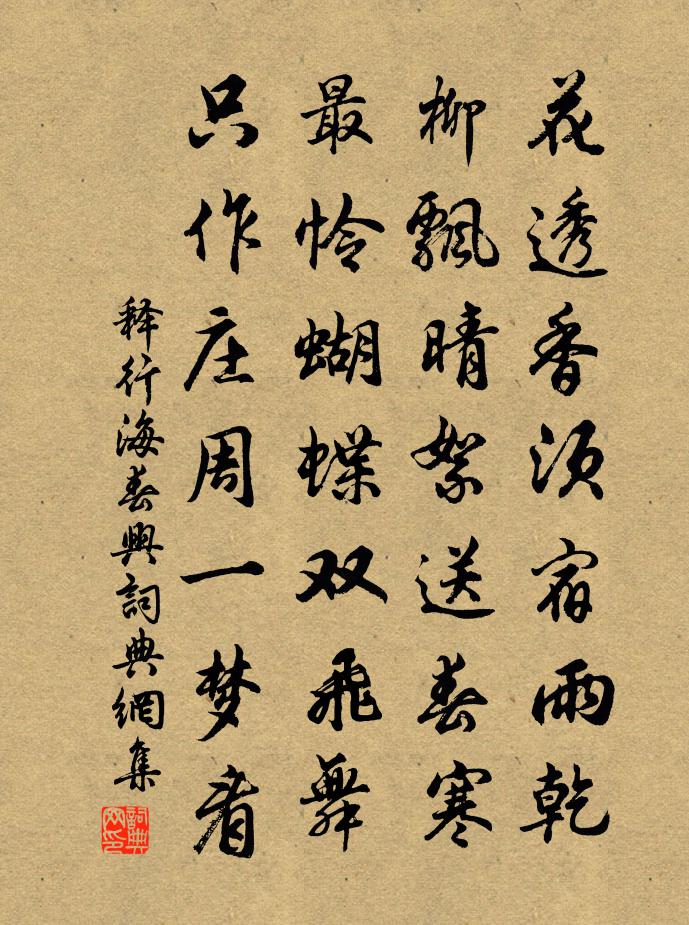 花透香须宿雨乾
柳飄晴絮送春寒
最怜蝴蝶双飛舞
只作庄周一梦看
释行海春興詞典網集
詞典网印